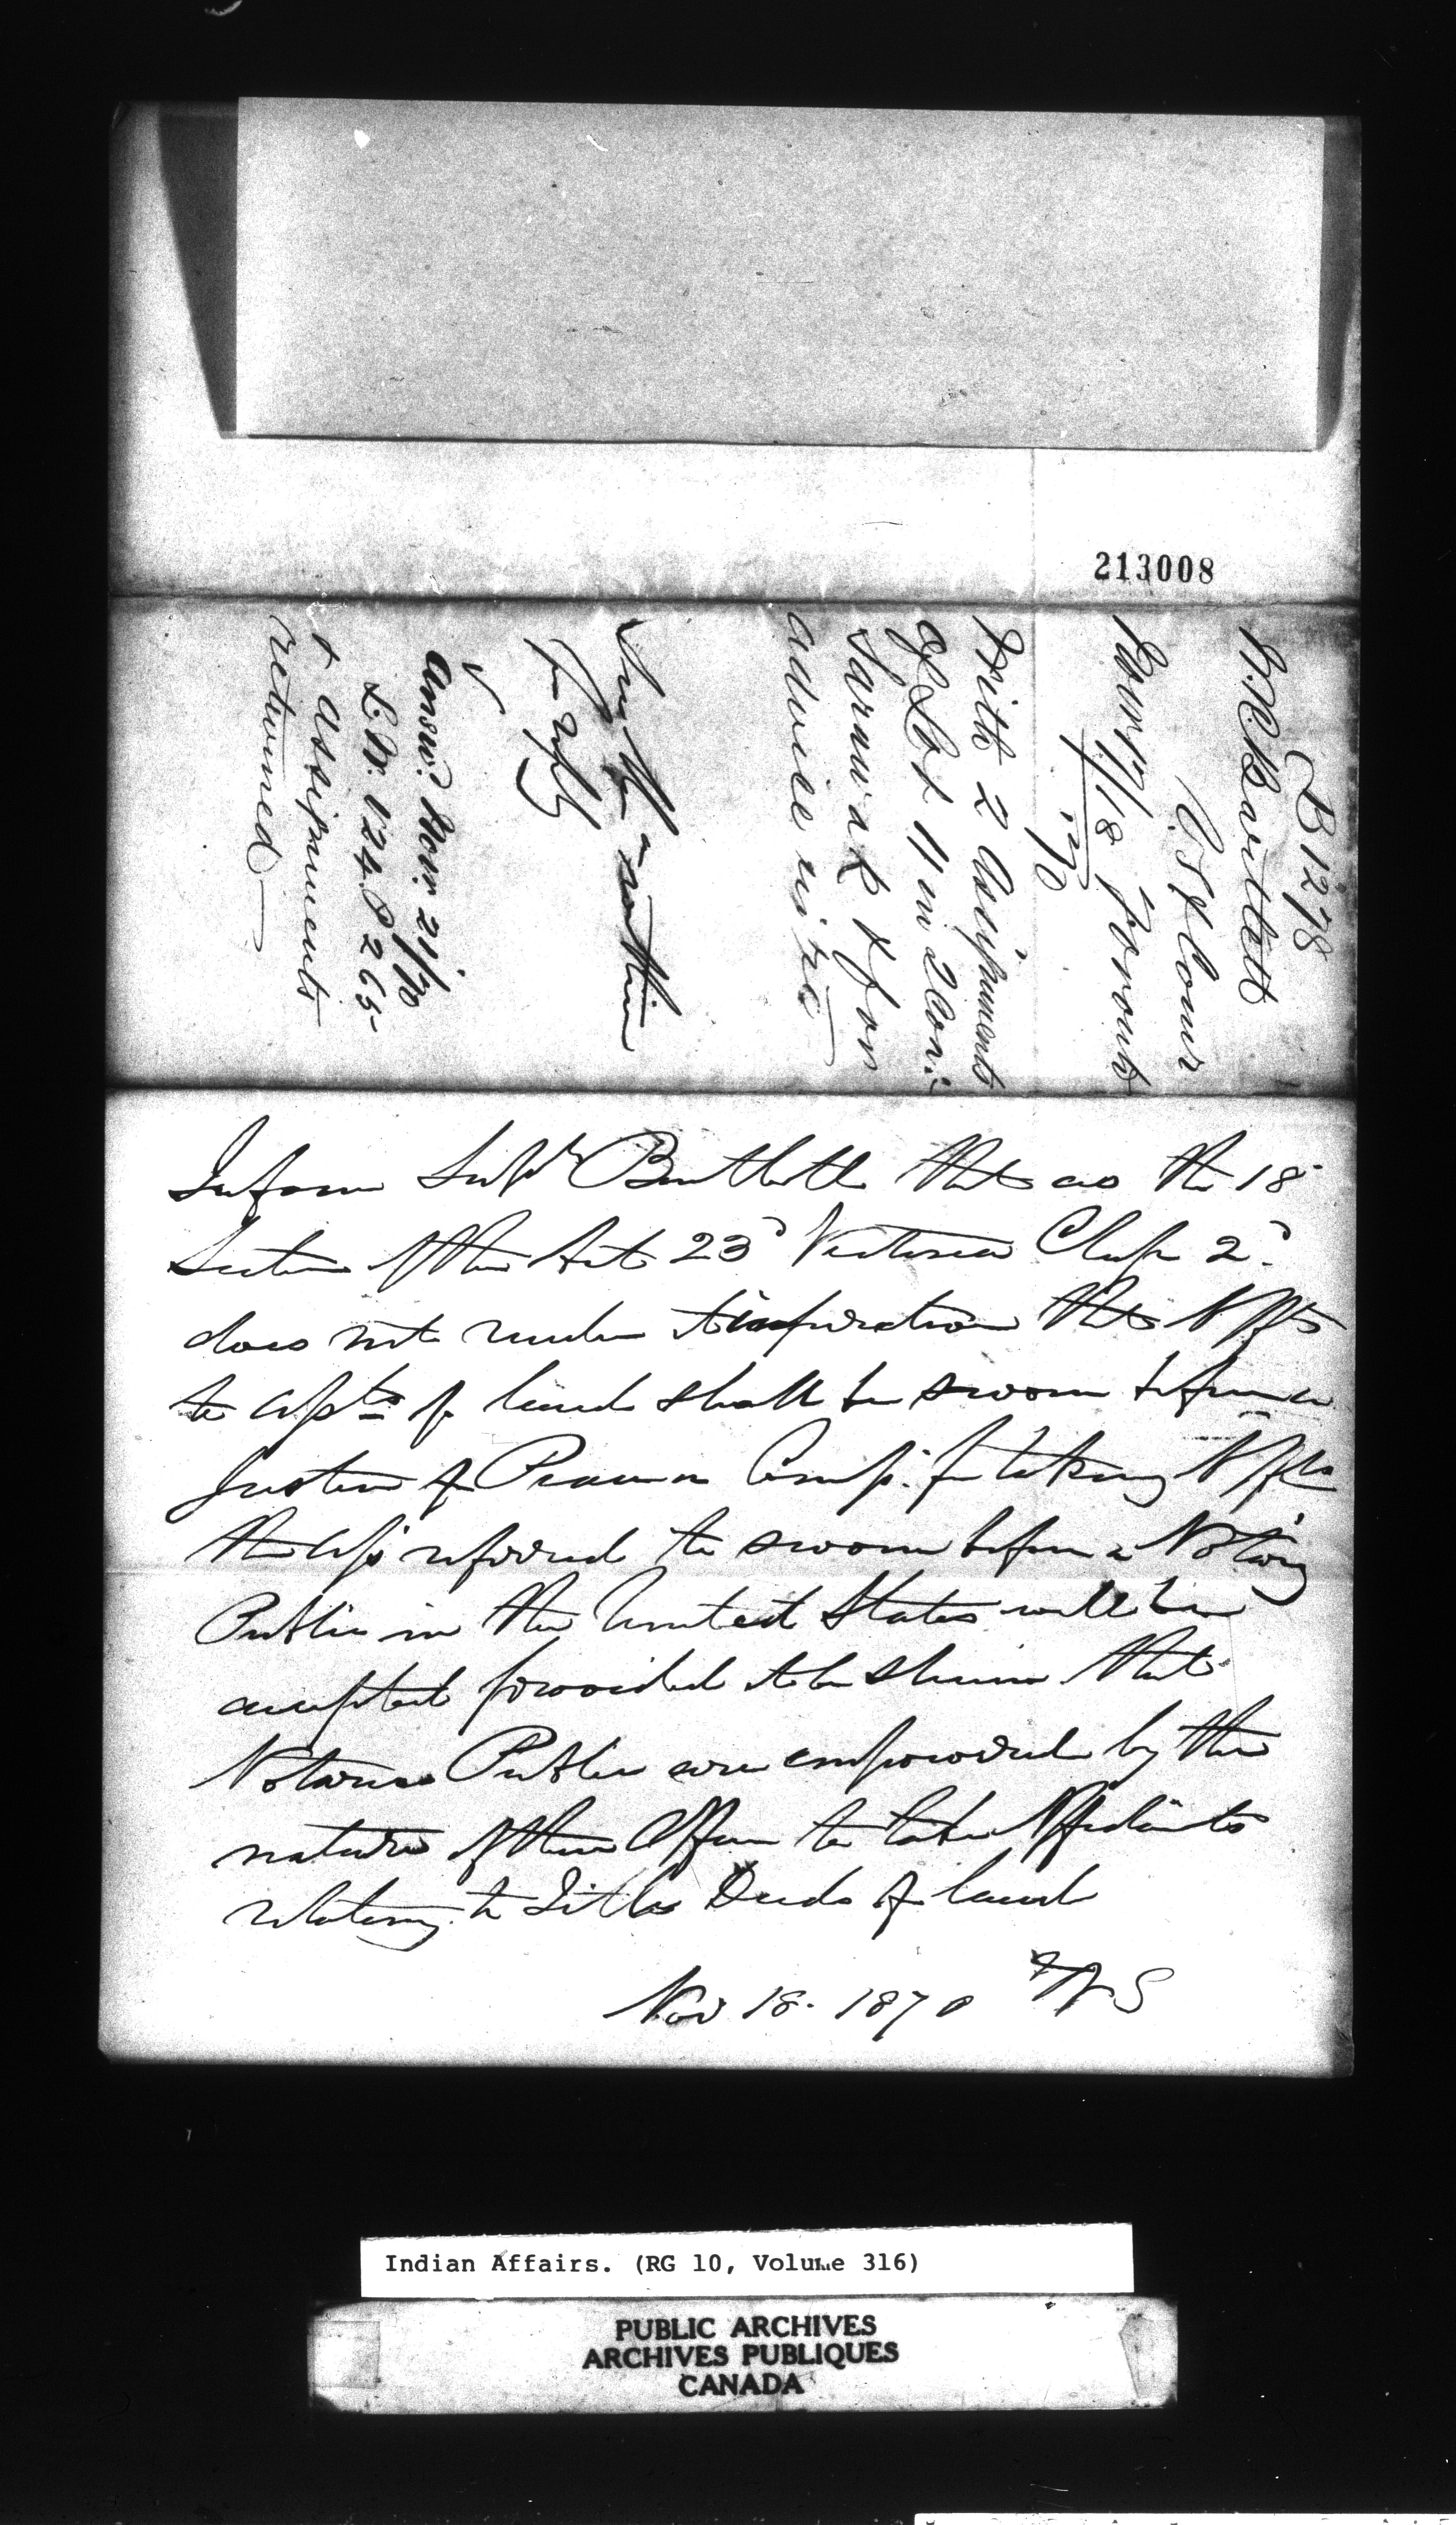 213008
B 1278
W. R. Bartlett
V. S. & Comr
Toronto
Novr 17/18 /70
With 2 Assignments
of Lot 11 in 2 Con:
Sarawak & for
advice in re
for reply
Answd Novr 21/70
L. Bk. 124 P 265
& assignments
returned
Inform Supt Bartlett that as the 18
Section of the Act 23d Victoria Chap 2d
does not render it imperative that Affts
to assts of land shall be sworn before a
Justice of Peace or Comr. for taking Affts
the Affts referred to sworn before a Notary
Public in the United States will be
accepted provided it be shewn that
Notaries Public are empowered by the
nature of their Office to take Affidavits
relating to Titles Deeds of land
Nov 18. 1870
WS
Indian Affairs. (RG 10, Volume 316)
PUBLIC ARCHIVES
ARCHIVES PUBLIQUES
CANADA